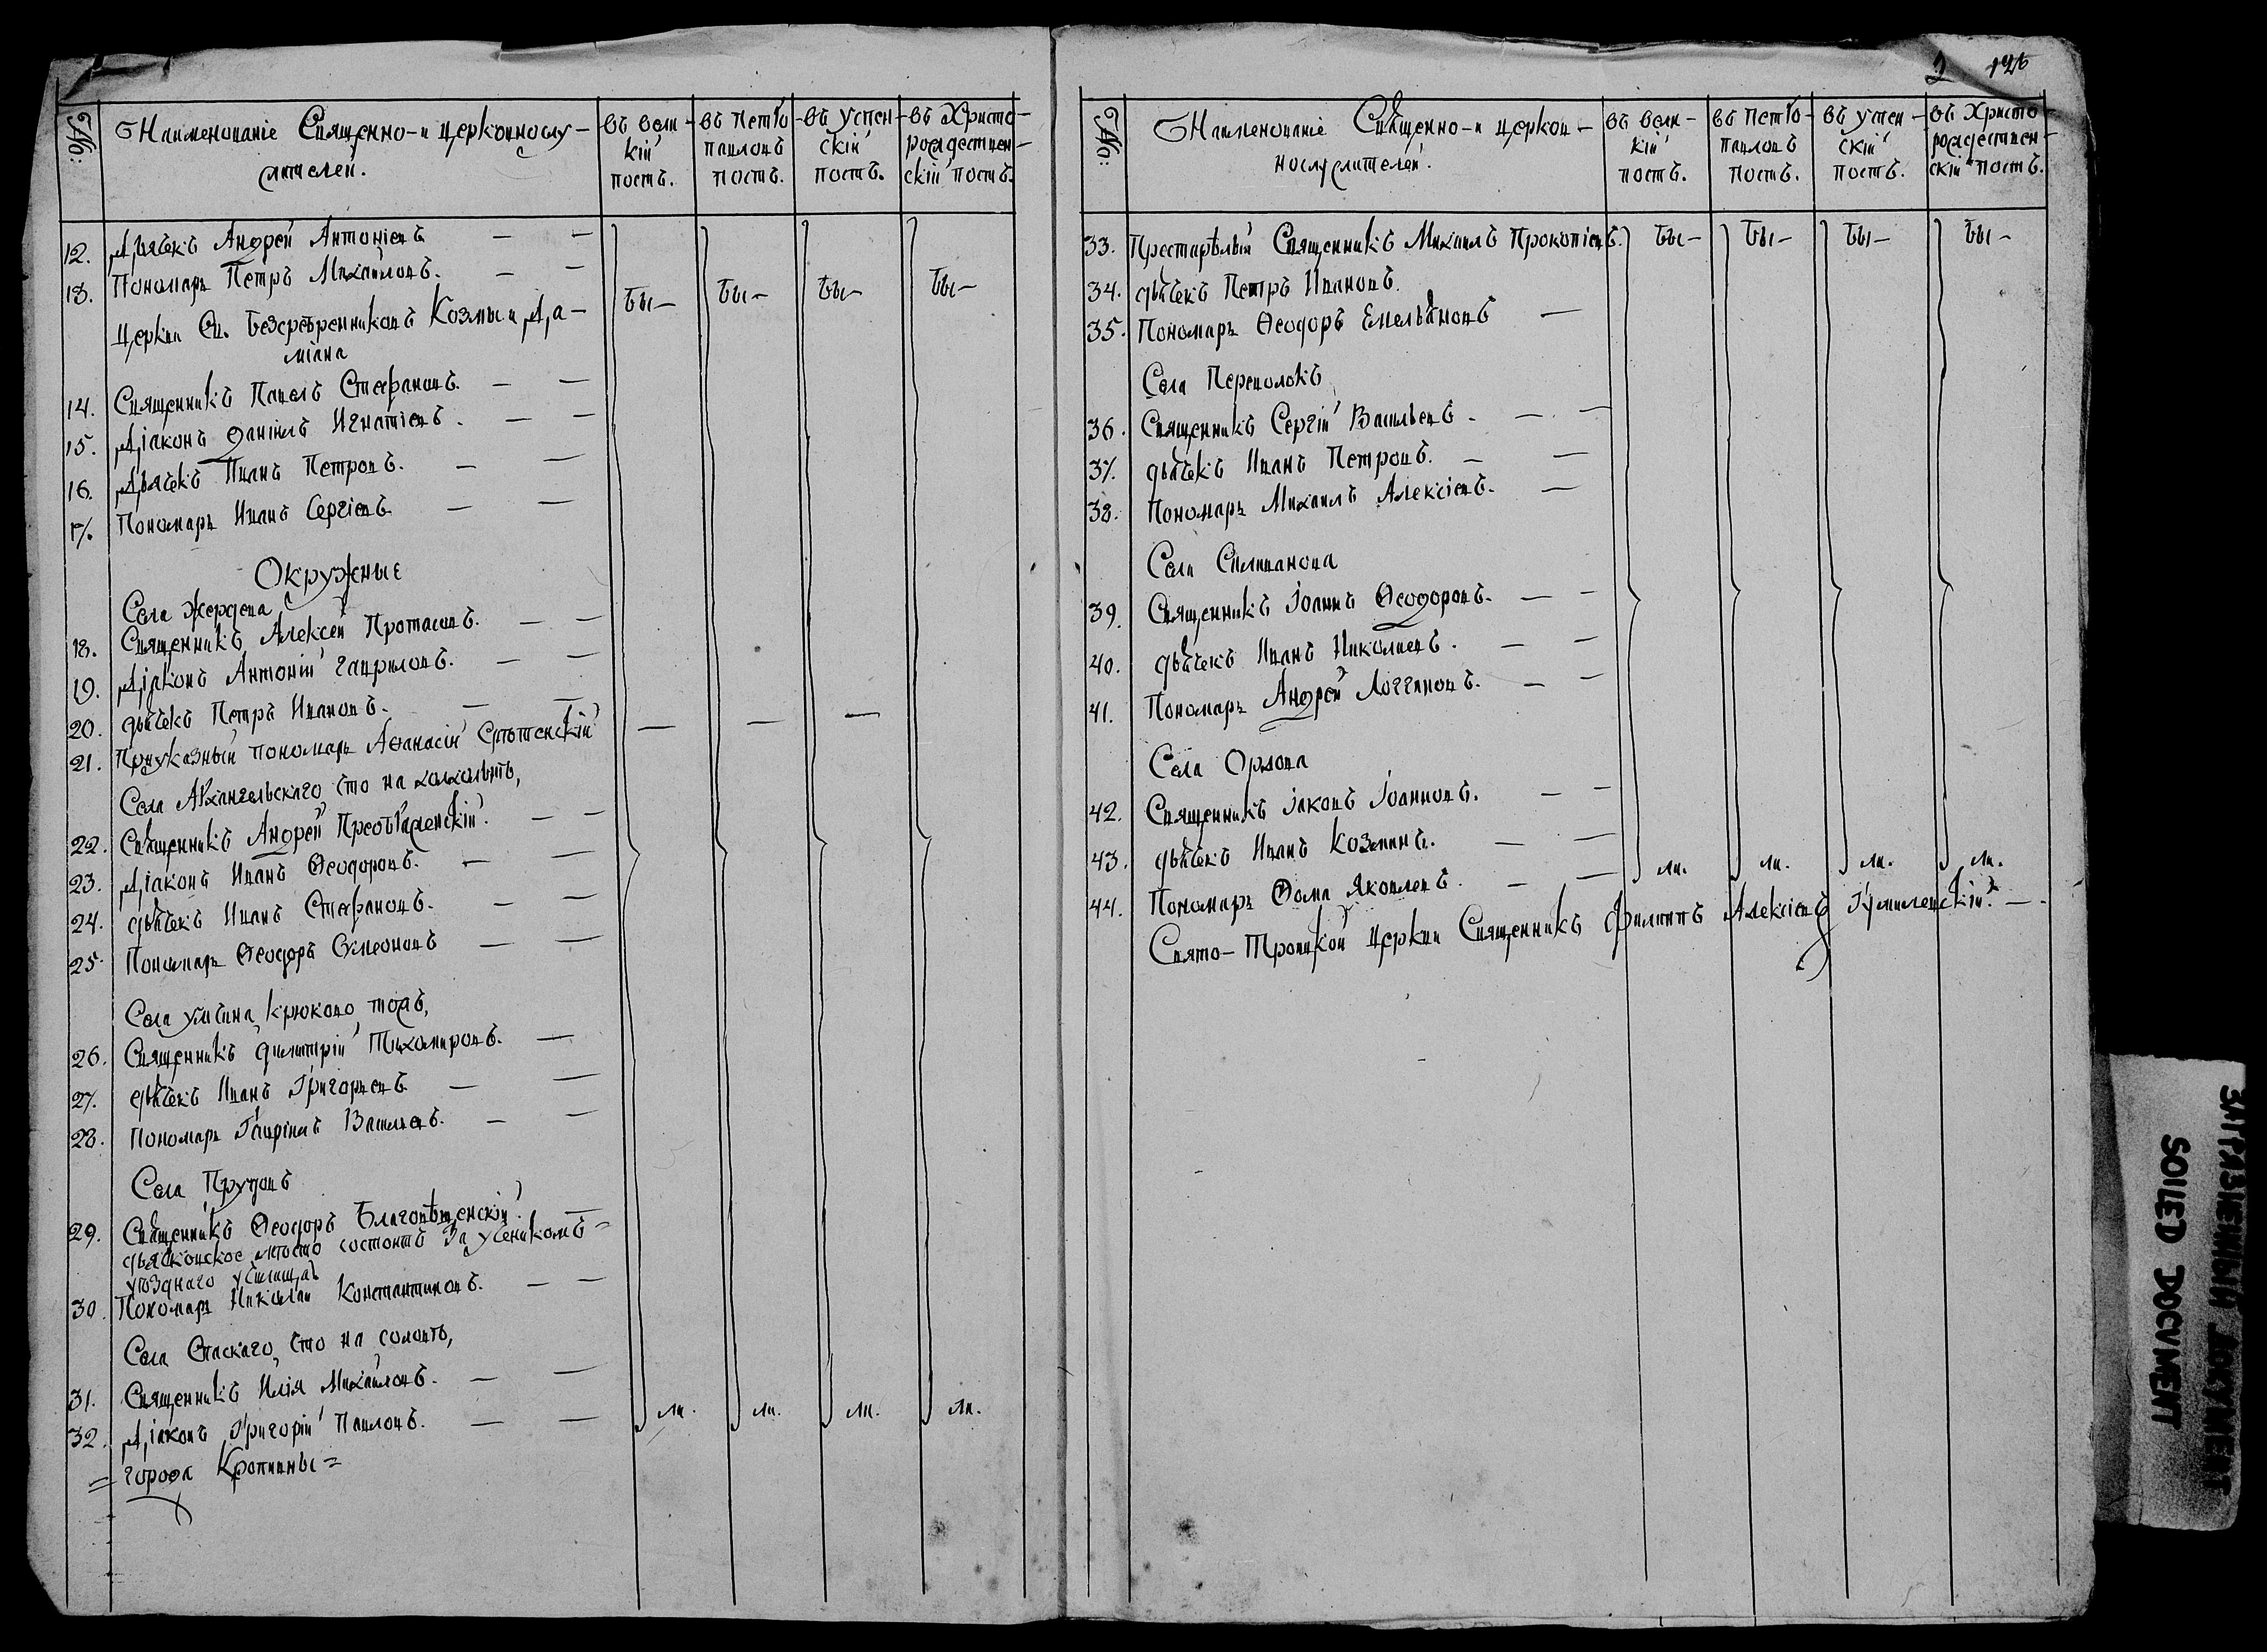 2 126
№: Наименованіе Священно- и церковнослу-
жителей.
въ вели-
кій
постъ.
въ Петро
павловъ
постъ.
въ успен-
скій
постъ.
въ Христо
рождествен-
скій постъ.
12. Дьячекъ Андрей Антоніевъ — —
13. Пономарь Петръ Михайловъ. — —
Церкви Св. Безсребренниковъ Козмы и Да-
міана
бы- бы- бы- бы-
14. Священникъ Павелъ Стефановъ. — —
15. Діаконъ Даніилъ Игнатіевъ. — —
16. Дьячекъ Иванъ Петровъ. — —
17. Пономарь Иванъ Сергіевъ — —
Окружные
Села Жердева
18. Священникъ Алексей Протасовъ. — —
19. Діаконъ Антоній Гавриловъ. — —
20. дьячекъ Петръ Ивановъ. — —
21. Приуказный пономарь Аѳанасій — — —
Села Архангельскаго что на
22. Священникъ Андрей Преображенскій. — —
23. Діаконъ Иванъ Ѳеодоровъ. — —
24. дьячекъ Иванъ Стефановъ. — —
25. Пономарь Ѳеодоръ Сѵмеоновъ — —
Села Крюково тожъ,
26. Священникъ Димитрій Тихомировъ. —
27. дьячекъ Иванъ Григорьевъ — —
28. Пономарь Гавріилъ Васильевъ. — —
Села Прудовъ
29. Священникъ Ѳеодоръ Благовѣщенскій. —
дьячковское мѣсто состоитъ за ученикомъ
уѣзднаго училища
30. Пономарь Николай Константиновъ. — —
Села Спаскаго, что на соловѣ,
31. Священникъ Илія Михайловъ. — —
32. Діаконъ Григорій Павловъ. — —
ли. ли. ли. ли.
= города Кропивны =
№: Наименованіе Священно- и церков-
нослужителей.
въ вели-
кій
постъ.
въ Петро-
павловъ
постъ.
въ успен-
скій
постъ.
въ Христо
рождествен-
скій постъ.
33. Престарѣлый Священникъ Михаилъ Прокопіевъ. бы- бы- бы- бы-
34. дьячекъ Петръ Ивановъ.
35. Пономарь Ѳеодоръ Емельяновъ —
Села Переволокъ
36. Священникъ Сергій Васильевъ. — —
37. дьячекъ Иванъ Петровъ. — —
38. Пономарь Михаилъ Алексіевъ. —
Села Селиванова
39. Священникъ Іоаннъ Ѳеодоровъ. — —
40. дьячекъ Иванъ Николаевъ. — —
41. Пономарь Андрей Логгиновъ. — —
Села Орлова
42. Священникъ Іаковъ Іоанновъ. — —
43. дьячекъ Иванъ Козминъ. — —
44. Пономарь Ѳома Яковлевъ. — —
ли. ли. ли. ли.
Свято-Троицкой Церкви Священникъ Филиппъ Алексіевъ Гумилевскій. —
ЗАГРЯЗНЕННЫЙ ДОКУМЕНТ
SOILED DOCUMENT